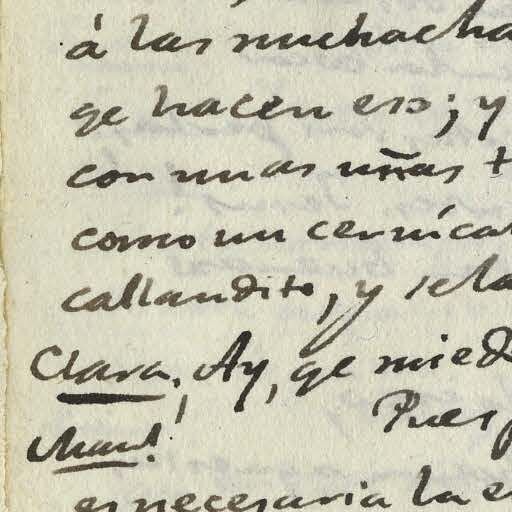 á las muchacha
qe hacen eso; y
con unas uñas t
como un cernícal
callandito, y se la
Clara. Ay, qe mied
Man!
Pues
es necesaria la e